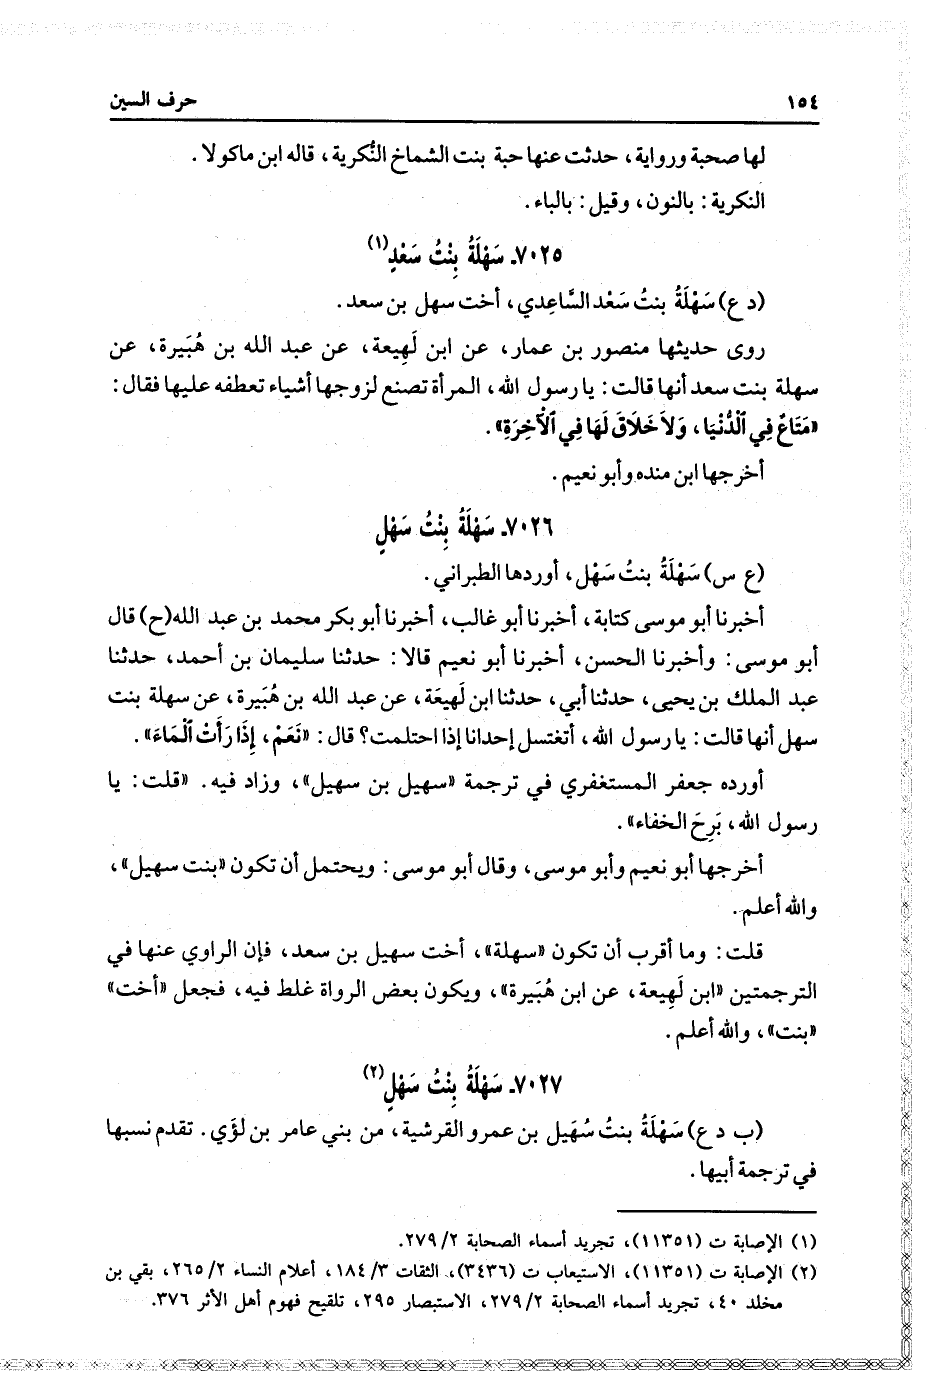 ١٥٤ حرف السين
لها صحبة ورواية، حدثت عنها حبة بنت الشماخ النُّكرية، قاله ابن ماكولا.
النكرية: بالنون، وقيل: بالباء.
٧٠٢٥ـ سَهْلَةُ بِنْتُ سَعْدٍ(١)
(د ع) سَهْلَةُ بنتُ سَعْد السَّاعِدي، أخت سهل بن سعد.
روى حديثها منصور بن عمار، عن ابن لَهِيعة، عن عبد الله بن هُبَيرة، عن
سهلة بنت سعد أنها قالت: يا رسول الله، المرأة تصنع لزوجها أشياء تعطفه عليها فقال:
«مَتَاعٌ فِي ٱلْدُّنْيَا، وَلاَ خَلاَقَ لَهَا فِي ٱلْآخِرَةِ».
أخرجها ابن منده وأبو نعيم.
٧٠٢٦ـ سَهْلَةُ بِنْتُ سَهْلٍ
(ع س) سَهْلَةُ بنتُ سَهْل، أوردها الطبراني.
أخبرنا أبو موسى كتابة، أخبرنا أبو غالب، أخبرنا أبو بكر محمد بن عبد الله(ح) قال
أبو موسى: وأخبرنا الحسن، أخبرنا أبو نعيم قالا: حدثنا سليمان بن أحمد، حدثنا
عبد الملك بن يحيى، حدثنا أبي، حدثنا ابن لَهِيعَة، عن عبد الله بن هُبَيرة، عن سهلة بنت
سهل أنها قالت: يا رسول الله، أتغتسل إحدانا إذا احتلمت؟ قال: «نَعَمْ، إِذَا رَأَتْ ٱلْمَاءَ».
أورده جعفر المستغفري في ترجمة «سهيل بن سهيل»، وزاد فيه. «قلت: يا
رسول الله، بَرِحَ الخفاء».
أخرجها أبو نعيم وأبو موسى، وقال أبو موسى: ويحتمل أن تكون «بنت سهيل»،
والله أعلم.
قلت: وما أقرب أن تكون «سهلة»، أخت سهيل بن سعد، فإن الراوي عنها في
الترجمتين «ابن لَهِيعة، عن ابن هُبَيرة»، ويكون بعض الرواة غلط فيه، فجعل «أخت»
«بنت»، والله أعلم.
٧٠٢٧ـ سَهْلَةُ بِنْتُ سَهْلٍ(٢)
(ب د ع) سَهْلَةُ بنتُ سُهَيل بن عمرو القرشية، من بني عامر بن لؤي. تقدم نسبها
في ترجمة أبيها.
(١) الإصابة ت (١١٣٥١)، تجريد أسماء الصحابة ٢/ ٢٧٩.
(٢) الإصابة ت (١١٣٥١)، الاستيعاب ت (٣٤٣٦)، الثقات ٣/ ١٨٤، أعلام النساء ٢/ ٢٦٥، بقي بن
مخلد ٤٠، تجريد أسماء الصحابة ٢/ ٢٧٩، الاستبصار ٢٩٥، تلقيح فهوم أهل الأثر ٣٧٦.